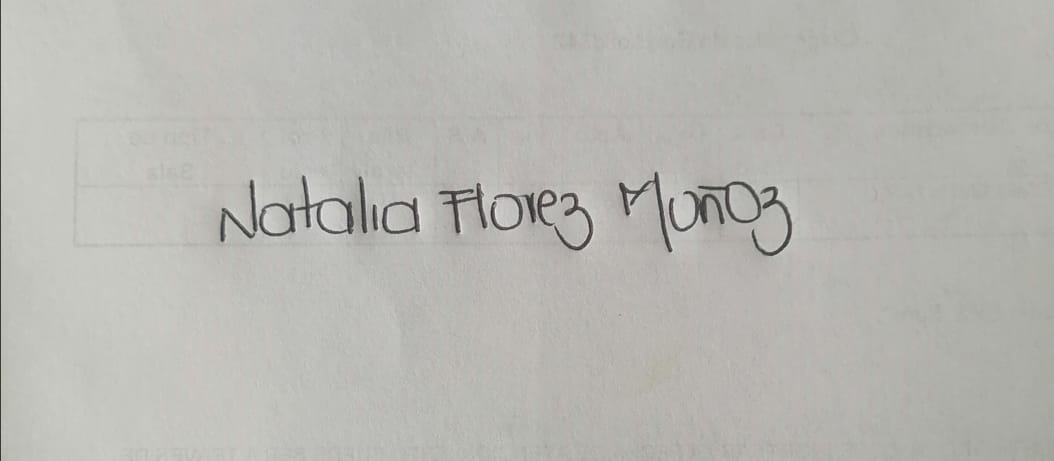 Natalia Florez Muñoz